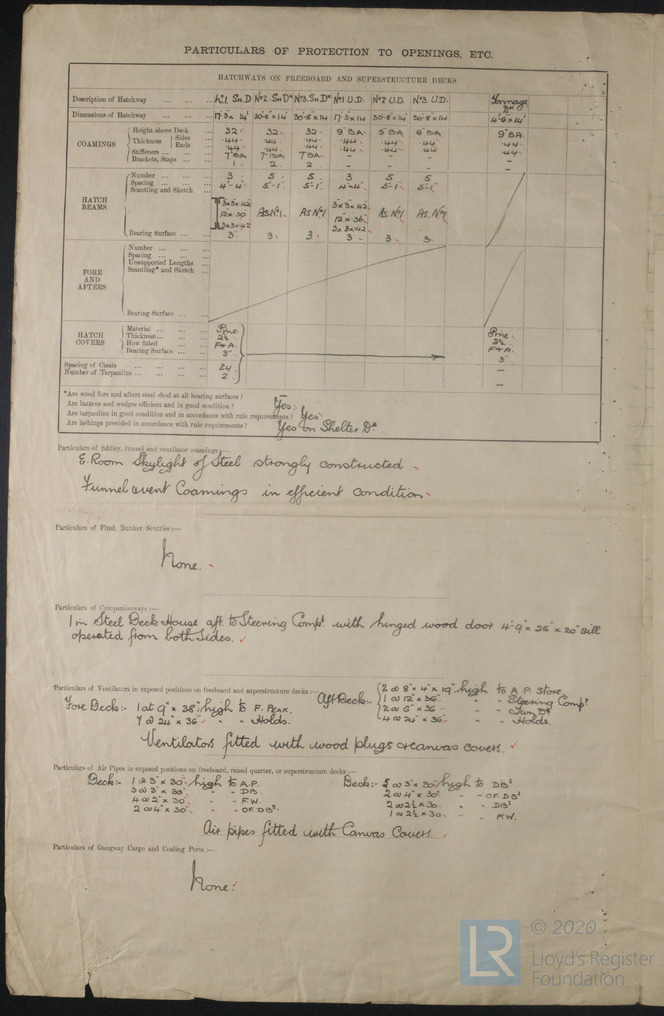 PARTICULARS OF PROTECTION TO OPENINGS, ETC.
HATCHWAYS ON FREEBOARD AND SUPERSTRUCTURE DECKS
Description of Hatchway ... ... ... No1 Sh D No2 Sh Dk No3 Sh Dk No1 U.D. No2 U.D. No3 U.D. Tonnage
Dimensions of Hatchway ... ... ... 17'3 x 14' 30'8" x 14' 30'8" x 14' 17'3 x 14 30'8" x 14' 30'8" x 14 4'0" x 14'
COAMINGS
Height above Deck ... 32 32 32 9" BA 9" BA 9" BA 9" BA
Thickness Sides ... .44 .44 .44 .44 .44 .44 .44
Ends ... .44 .44 .44 .44 .44 .44 .44
Stiffeners ... 7" BA 7" BA 7" BA - - - -
Brackets, Stays ... 1 2 2 - - - -
HATCH BEAMS
Number ... 3 5 5 3 5 5
Spacing ... 4'-4" 5'-1" 5'-1" 4'-4" 5'-1" 5'-1"
Scantling and Sketch
3x3x.42 3x3x.42
12x.30 As No1 As No1 12"x.36 As No1 As No1
3x3x.42 3x3x.42
Bearing Surface ... 3 3 3 3 3 3
FORE AND AFTERS
Number ...
Spacing ...
Unsupported Lengths ...
Scantling* and Sketch
Bearing Surface ...
HATCH COVERS
Material ... Pine Pine
Thickness ... 2½ 2½
How fitted ... F & A F & A
Bearing Surface ... 3" 3
Spacing of Cleats ... 24 -
Number of Tarpaulins ... 2 -
*Are wood fore and afters steel shod at all bearing surfaces? -
Are battens and wedges efficient and in good condition? Yes
Are tarpaulins in good condition and in accordance with rule requirements? Yes
Are lashings provided in accordance with rule requirements? Yes on Shelter Dk
Particulars of fiddley, funnel and ventilator coamings:—
E. Room Skylight of Steel strongly constructed
Funnel & vent Coamings in efficient condition
Particulars of Flush Bunker Scuttles:—
None.
Particulars of Companionways:—
1 in Steel Deck House aft to Steering Compt with hinged wood door 4'9" x 25" x 20" Sill
operated from both sides.
Particulars of Ventilators in exposed positions on freeboard and superstructure decks:—
Fore Deck:- 1 at 9" x 38" high to F. Peak.
7 @ 24" x 36" " " Holds.
Aft Deck:- 2 @ 8" x 4" x 19" high to A.P. Store
1 @ 12" x 36" " " Steering Compt
2 @ 6" x 36 " "
4 @ 24" x 36" " " Holds.
Ventilators fitted with wood plugs & canvas covers.
Particulars of Air Pipes in exposed positions on freeboard, raised quarter, or superstructure decks:—
Deck:- 1 @ 3" x 30" high to A.P.
3 @ 3" x 30" " " DB.
4 @ 2" x 30" " " F.W.
2 @ 4" x 30" " " OF DBs
Deck:- 5 @ 3" x 30" high to DBs
2 @ 4" x 30" " " OF DBs
2 @ 2½ x 30 " " DBs
1 @ 2½ x 30 " " F.W.
Air pipes fitted with Canvas Covers
Particulars of Gangway Cargo and Coaling Ports:—
None.
LR
© 2020
Lloyd's Register
Foundation